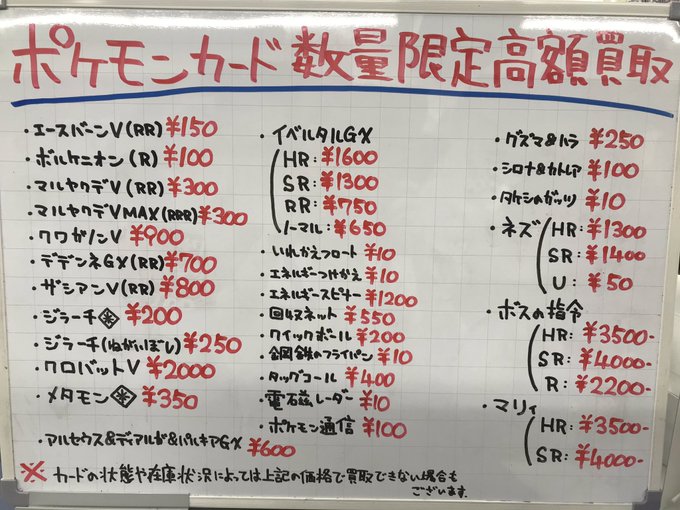 ポケモンカード数量限定高額買取
・エースバーンV(RR) ¥150
・ボルケニオン(R) ¥100
・マルヤクデV(RR) ¥300
・マルヤクデVMAX(RRR) ¥300
・クワガノンV ¥900
・デデンネGX(RR) ¥700
・ザシアンV(RR) ¥800
・ジラーチ ¥200
・ジラーチ(ねがいぼし) ¥250
・クロバットV ¥2000
・メタモン ¥350
・アルセウス&ディアルガ&パルキアGX ¥600
・イベルタルGX
HR: ¥1600
SR: ¥1300
RR: ¥750
ノーマル: ¥650
・いれかえフロート ¥10
・エネルギーつけかえ ¥10
・エネルギースピナー ¥1200
・回収ネット ¥550
・クイックボール ¥200
・鋼鉄のフライパン ¥10
・タッグコール ¥400
・電磁レーダー ¥10
・ポケモン通信 ¥100
・グズマ&ハラ ¥250
・シロナ&カトレア ¥100
・タケシのガッツ ¥10
・ネズ HR: ¥1300
SR: ¥1400
U: ¥50
・ボスの指令
HR: ¥3500-
SR: ¥4000-
R: ¥2200-
・マリィ
HR: ¥3500-
SR: ¥4000-
※ カードの状態や在庫状況によっては上記の価格で買取できない場合も
ございます。